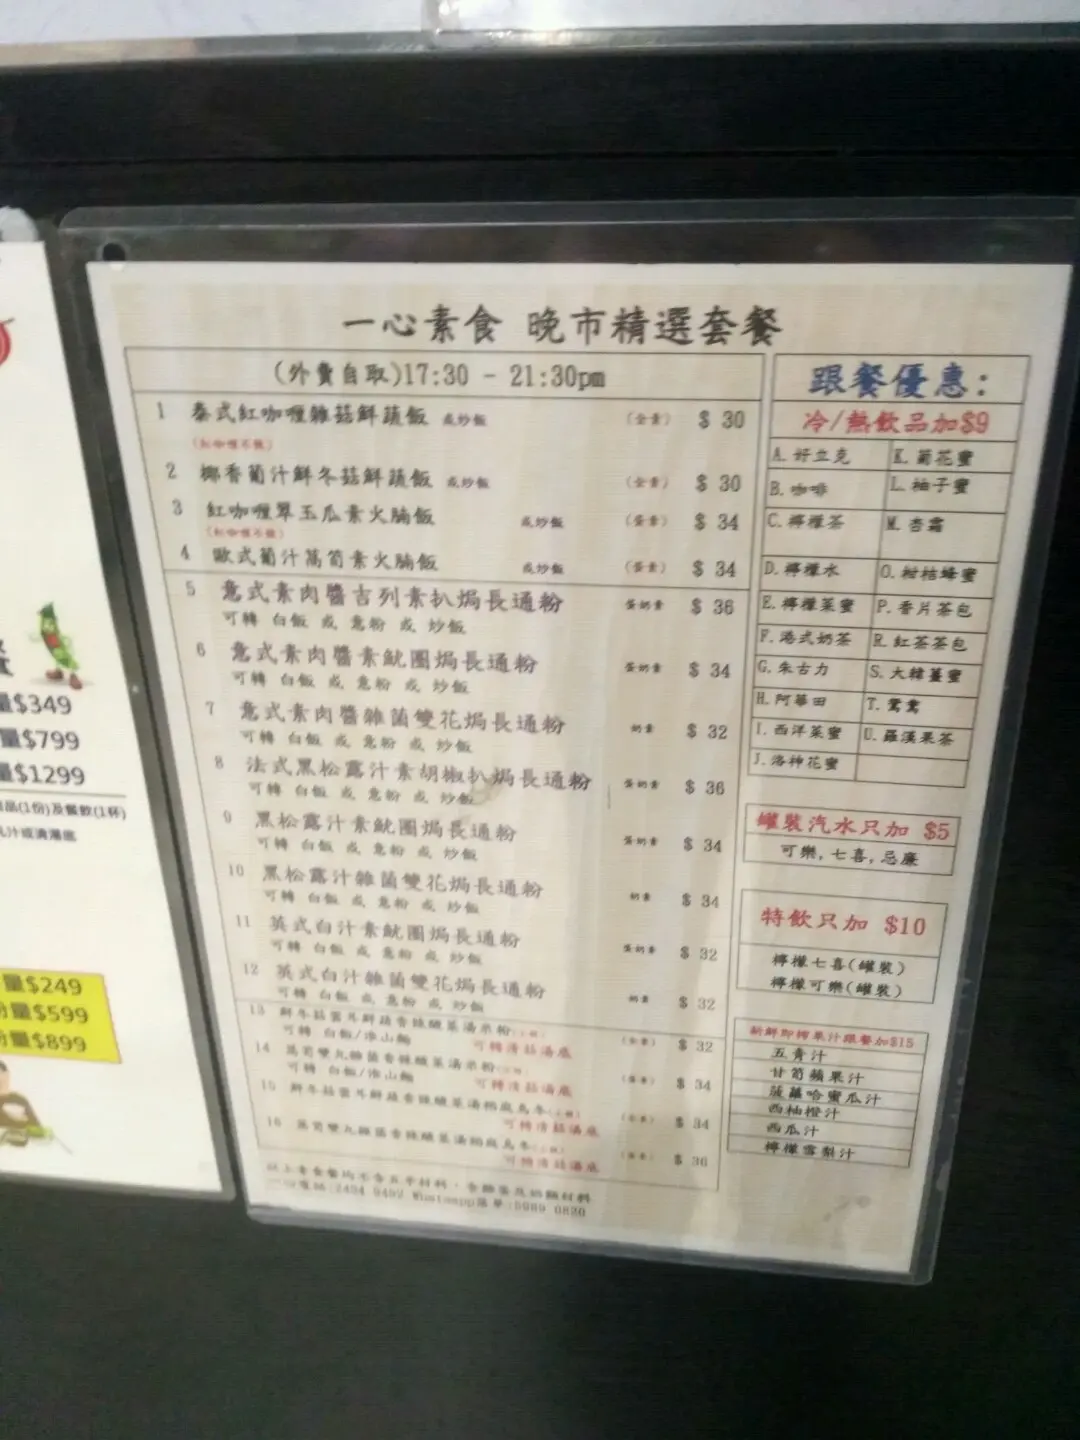 一心素食 晚市精選套餐
(外賣自取)17:30 - 21:30pm
1 泰式紅咖喱雜菇鮮蔬飯 或炒飯 (全素) $ 30
(紅咖喱不辣)
2 椰香葡汁鮮冬菇鮮蔬飯 或炒飯 (全素) $ 30
3 紅咖喱翠玉瓜素火腩飯 或炒飯 (蛋素) $ 34
(紅咖喱不辣)
4 歐式葡汁萵筍素火腩飯 或炒飯 (蛋素) $ 34
5 意式素肉醬吉列素扒焗長通粉 蛋奶素 $ 36
可轉 白飯 或 意粉 或 炒飯
6 意式素肉醬素魷圈焗長通粉 蛋奶素 $ 34
可轉 白飯 或 意粉 或 炒飯
7 意式素肉醬雜菌雙花焗長通粉 奶素 $ 32
可轉 白飯 或 意粉 或 炒飯
8 法式黑松露汁素胡椒扒焗長通粉 蛋奶素 $ 36
可轉 白飯 或 意粉 或 炒飯
9 黑松露汁素魷圈焗長通粉 蛋奶素 $ 34
可轉 白飯 或 意粉 或 炒飯
10 黑松露汁雜菌雙花焗長通粉 奶素 $ 34
可轉 白飯 或 意粉 或 炒飯
11 英式白汁素魷圈焗長通粉 蛋奶素 $ 32
可轉 白飯 或 意粉 或 炒飯
12 英式白汁雜菌雙花焗長通粉 奶素 $ 32
可轉 白飯 或 意粉 或 炒飯
13 鮮冬菇雲耳鮮蔬香辣酸菜湯米粉 (全素) $ 32
可轉 白飯/淮山麵 可轉清菇湯底
14 萵筍雙丸 香辣酸菜湯米粉 (蛋素) $ 34
可轉 白飯/淮山麵 可轉清菇湯底
15 鮮冬菇雲耳鮮蔬香辣酸菜湯稻庭烏冬 (全素) $ 34
可轉清菇湯底
16 萵筍雙丸 香辣酸菜湯稻庭烏冬 (蛋素) $ 36
可轉清菇湯底
以上素食餐均不含五辛材料,
Whatsapp
跟餐優惠:
冷/熱飲品加$9
A.好立克 K.菊花蜜
B.咖啡 L.柚子蜜
C.檸檬茶 M.杏霜
D.檸檬水 O.柑桔蜂蜜
E.檸檬菜蜜 P.香片茶包
F.港式奶茶 R.紅茶茶包
G.朱古力 S.大韓薑蜜
H.阿華田 T.鴛鴦
I.西洋菜蜜 U.羅漢果茶
J.洛神花蜜
罐裝汽水只加 $5
可樂,七喜,忌廉
特飲只加 $10
檸檬七喜(罐裝)
檸檬可樂(罐裝)
新鮮即榨果汁跟餐加$15
五青汁
甘筍蘋果汁
菠蘿哈蜜瓜汁
西柚橙汁
西瓜汁
檸檬雪梨汁
餐
量$349
量$799
量$1299
品(1份)及餐飲(1杯)
乳汁或清湯底
量$249
份量$599
份量$899